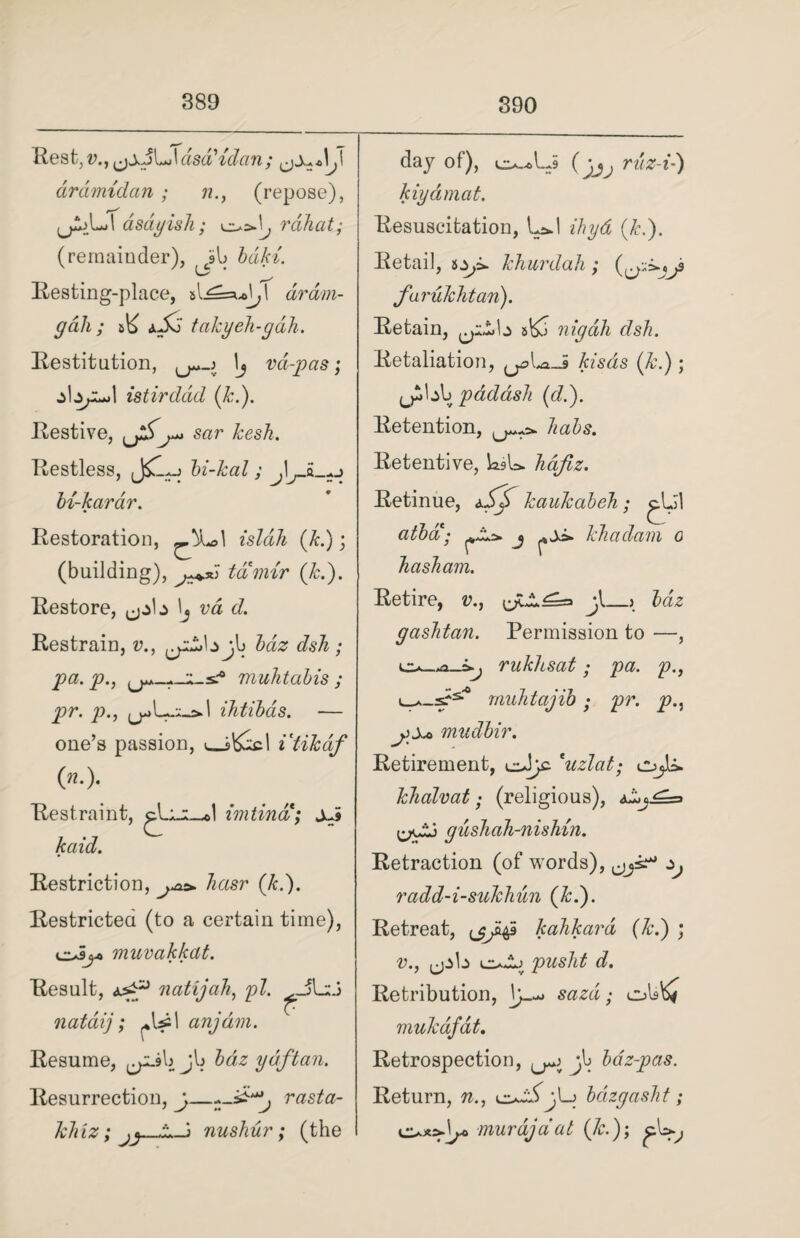 389
Rest, v., آسائیدن ásá'ídan; آرامیدن
árámídan; n., (repose),
آسایش ásáyish; راحت ráhat;
(remainder), باقی bákí.
Resting-place, آرامگاه árám-
gáh; تکیه گاه takyeh-gáh.
Restitution, وا پس vá-pas;
استرداد istirdád (k.).
Restive, سرکش sar kesh.
Restless, بیکل bí-kal; بیقرار
bí-karár.
Restoration, اصلاح isláh (k.);
(building), تعمیر ta'mír (k.).
Restore, وا دادن vá d.
Restrain, v., باز داشتن báz dsh;
pa. p., محتبس muhtabis;
pr. p., احتباس ihtibás. —
one's passion, اعتکاف i'tikáf
(n.).
Restraint, امتناع imtiná'; قید
kaid.
Restriction, حصر hasr (k.).
Restricted (to a certain time),
موقت muvakkat.
Result, نتیجه natíjah, pl. نتائج
natáij; انجام anjám.
Resume, باز یافتن báz yáftan.
Resurrection, رستخیز rasta-
khíz; نشور nushúr; (the
390
day of), قیامت (روز rúz-i-)
kiyámat.
Resuscitation, احیا ihyá (k.).
Retail, خرده khurdah; (فروختن
farúkhtan).
Retain, نگاه داشتن nigáh dsh.
Retaliation, قصاص kisás (k.);
پاداش pádásh (d.).
Retention, حبس habs.
Retentive, حافظ háfiz.
Retinue, کوکبه kaukabeh; اتباع
atbá'; خدم و حشم khadam o
hasham.
Retire, v., باز گشتن báz
gashtan. Permission to —,
رخصت rukhsat; pa. p.,
محتجب muhtajib; pr. p.,
مدبر mudbir.
Retirement, عزلت 'uzlat; خلوت
khalvat; (religious), گوشه
نشین gúshah-nishín.
Retraction (of words), رد سخن
radd-i-sukhún (k.).
Retreat, قهقری kahkará (k.);
v., پشت دادن pusht d.
Retribution, سزا sazá; مکافات
mukáfát.
Retrospection, باز پس báz-pas.
Return, n., بازگشت bázgasht;
مراجعت murája'at (k.); رجاع